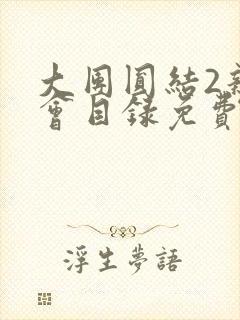 大團圓結2新
會目錄免費
浮生夢語